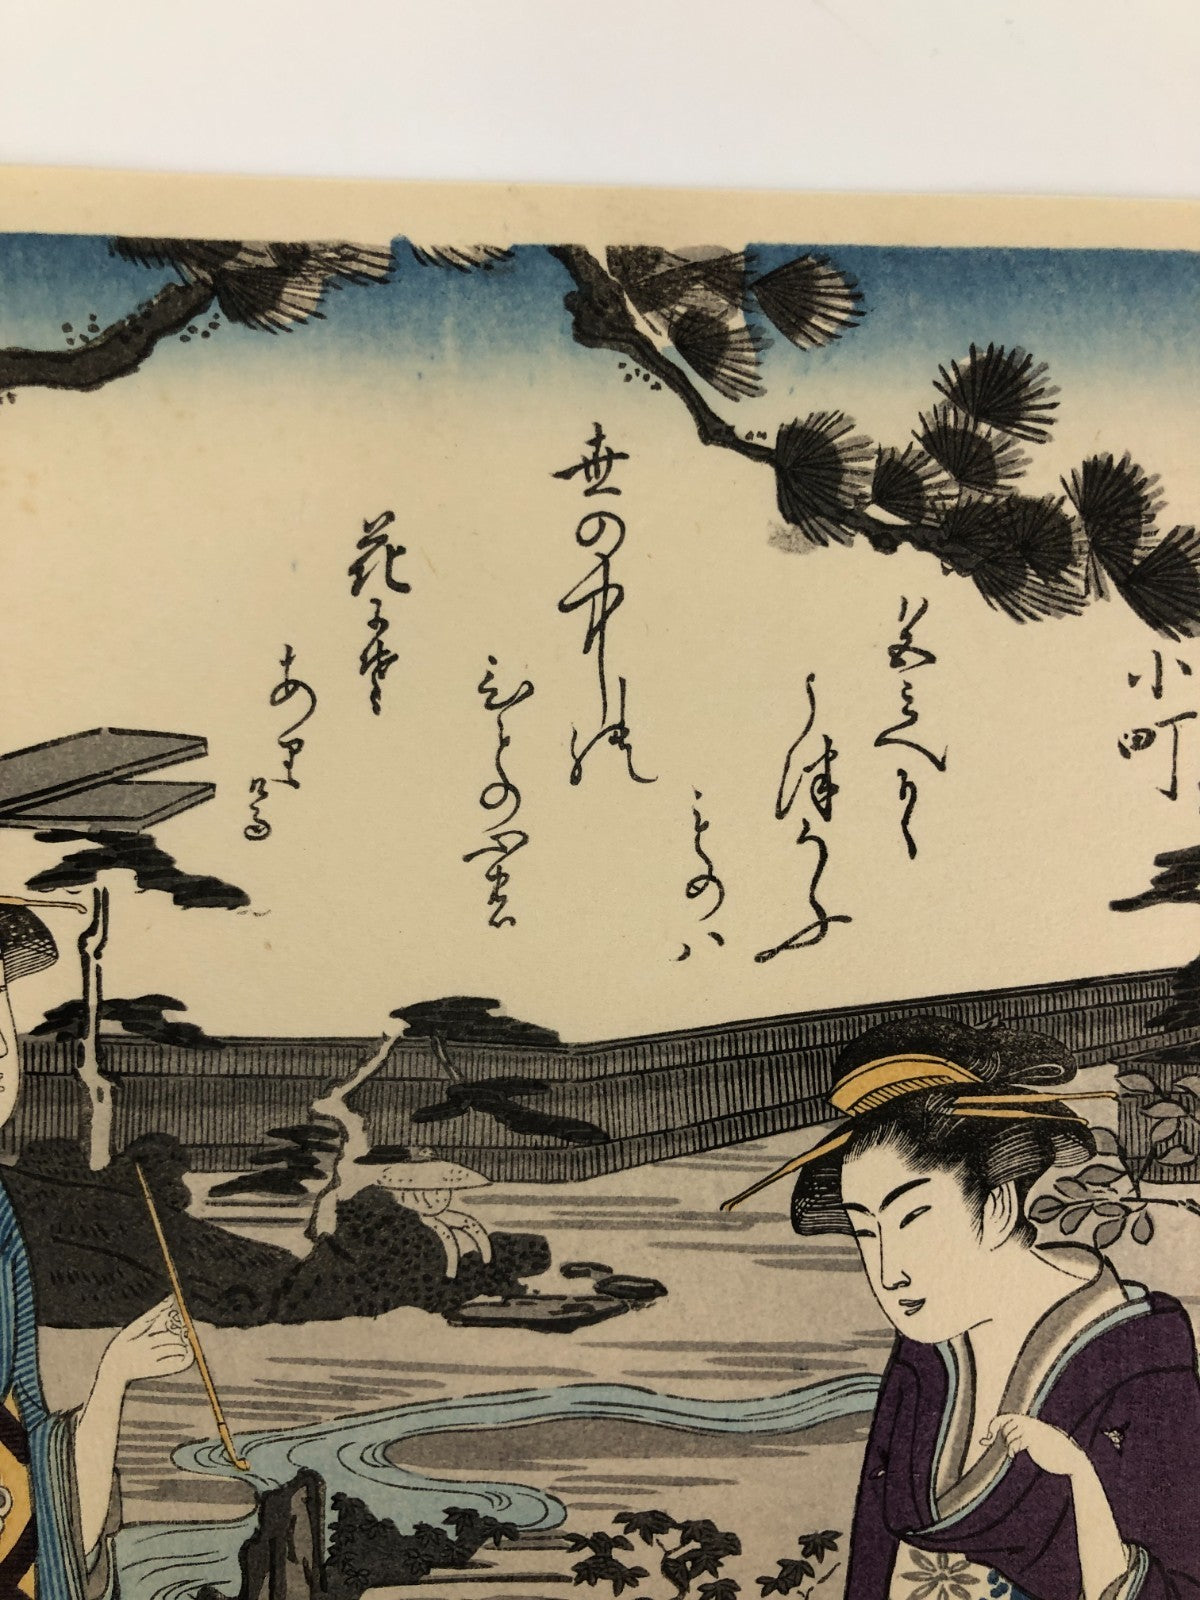 小町
色みえて
うつろふ
ものハ
世の中の
ひとの心の
花にそ
ありける